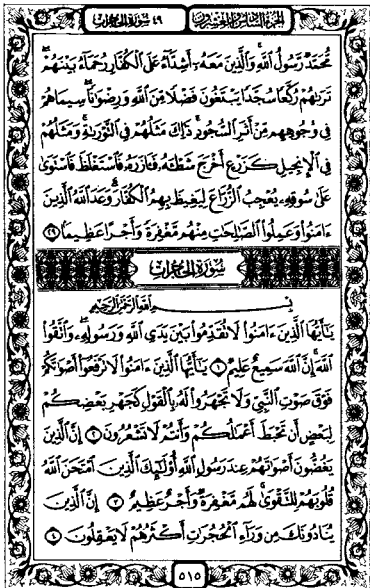 الجزء السادس والعشرون ٤٩ سورة الحجرات
مُّحَمَّدٌ رَّسُولُ اللَّهِ وَالَّذِينَ مَعَهُ أَشِدَّاءُ عَلَى الْكُفَّارِ رُحَمَاءُ بَيْنَهُمْ
تَرَىٰهُمْ رُكَّعًا سُجَّدًا يَبْتَغُونَ فَضْلًا مِّنَ اللَّهِ وَرِضْوَٰنًا سِيمَاهُمْ
فِي وُجُوهِهِم مِّنْ أَثَرِ السُّجُودِ ذَٰلِكَ مَثَلُهُمْ فِي التَّوْرَىٰةِ وَمَثَلُهُمْ
فِي الْإِنجِيلِ كَزَرْعٍ أَخْرَجَ شَطْـَٔهُ فَـَٔازَرَهُ فَاسْتَغْلَظَ فَاسْتَوَىٰ
عَلَىٰ سُوقِهِ يُعْجِبُ الزُّرَّاعَ لِيَغِيظَ بِهِمُ الْكُفَّارَ وَعَدَ اللَّهُ الَّذِينَ
ءَامَنُوا وَعَمِلُوا الصَّٰلِحَٰتِ مِنْهُم مَّغْفِرَةً وَأَجْرًا عَظِيمًا ٢٩
سورة الحجرات
بسم الله الرحمن الرحيم
يَٰٓأَيُّهَا الَّذِينَ ءَامَنُوا لَا تُقَدِّمُوا بَيْنَ يَدَيِ اللَّهِ وَرَسُولِهِ وَاتَّقُوا
اللَّهَ إِنَّ اللَّهَ سَمِيعٌ عَلِيمٌ ١ يَٰٓأَيُّهَا الَّذِينَ ءَامَنُوا لَا تَرْفَعُوا أَصْوَٰتَكُمْ
فَوْقَ صَوْتِ النَّبِيِّ وَلَا تَجْهَرُوا لَهُ بِالْقَوْلِ كَجَهْرِ بَعْضِكُمْ
لِبَعْضٍ أَن تَحْبَطَ أَعْمَٰلُكُمْ وَأَنتُمْ لَا تَشْعُرُونَ ٢ إِنَّ الَّذِينَ
يَغُضُّونَ أَصْوَٰتَهُمْ عِندَ رَسُولِ اللَّهِ أُولَٰٓئِكَ الَّذِينَ امْتَحَنَ اللَّهُ
قُلُوبَهُمْ لِلتَّقْوَىٰ لَهُم مَّغْفِرَةٌ وَأَجْرٌ عَظِيمٌ ٣ إِنَّ الَّذِينَ
يُنَادُونَكَ مِن وَرَاءِ الْحُجُرَٰتِ أَكْثَرُهُمْ لَا يَعْقِلُونَ ٤
٥١٥